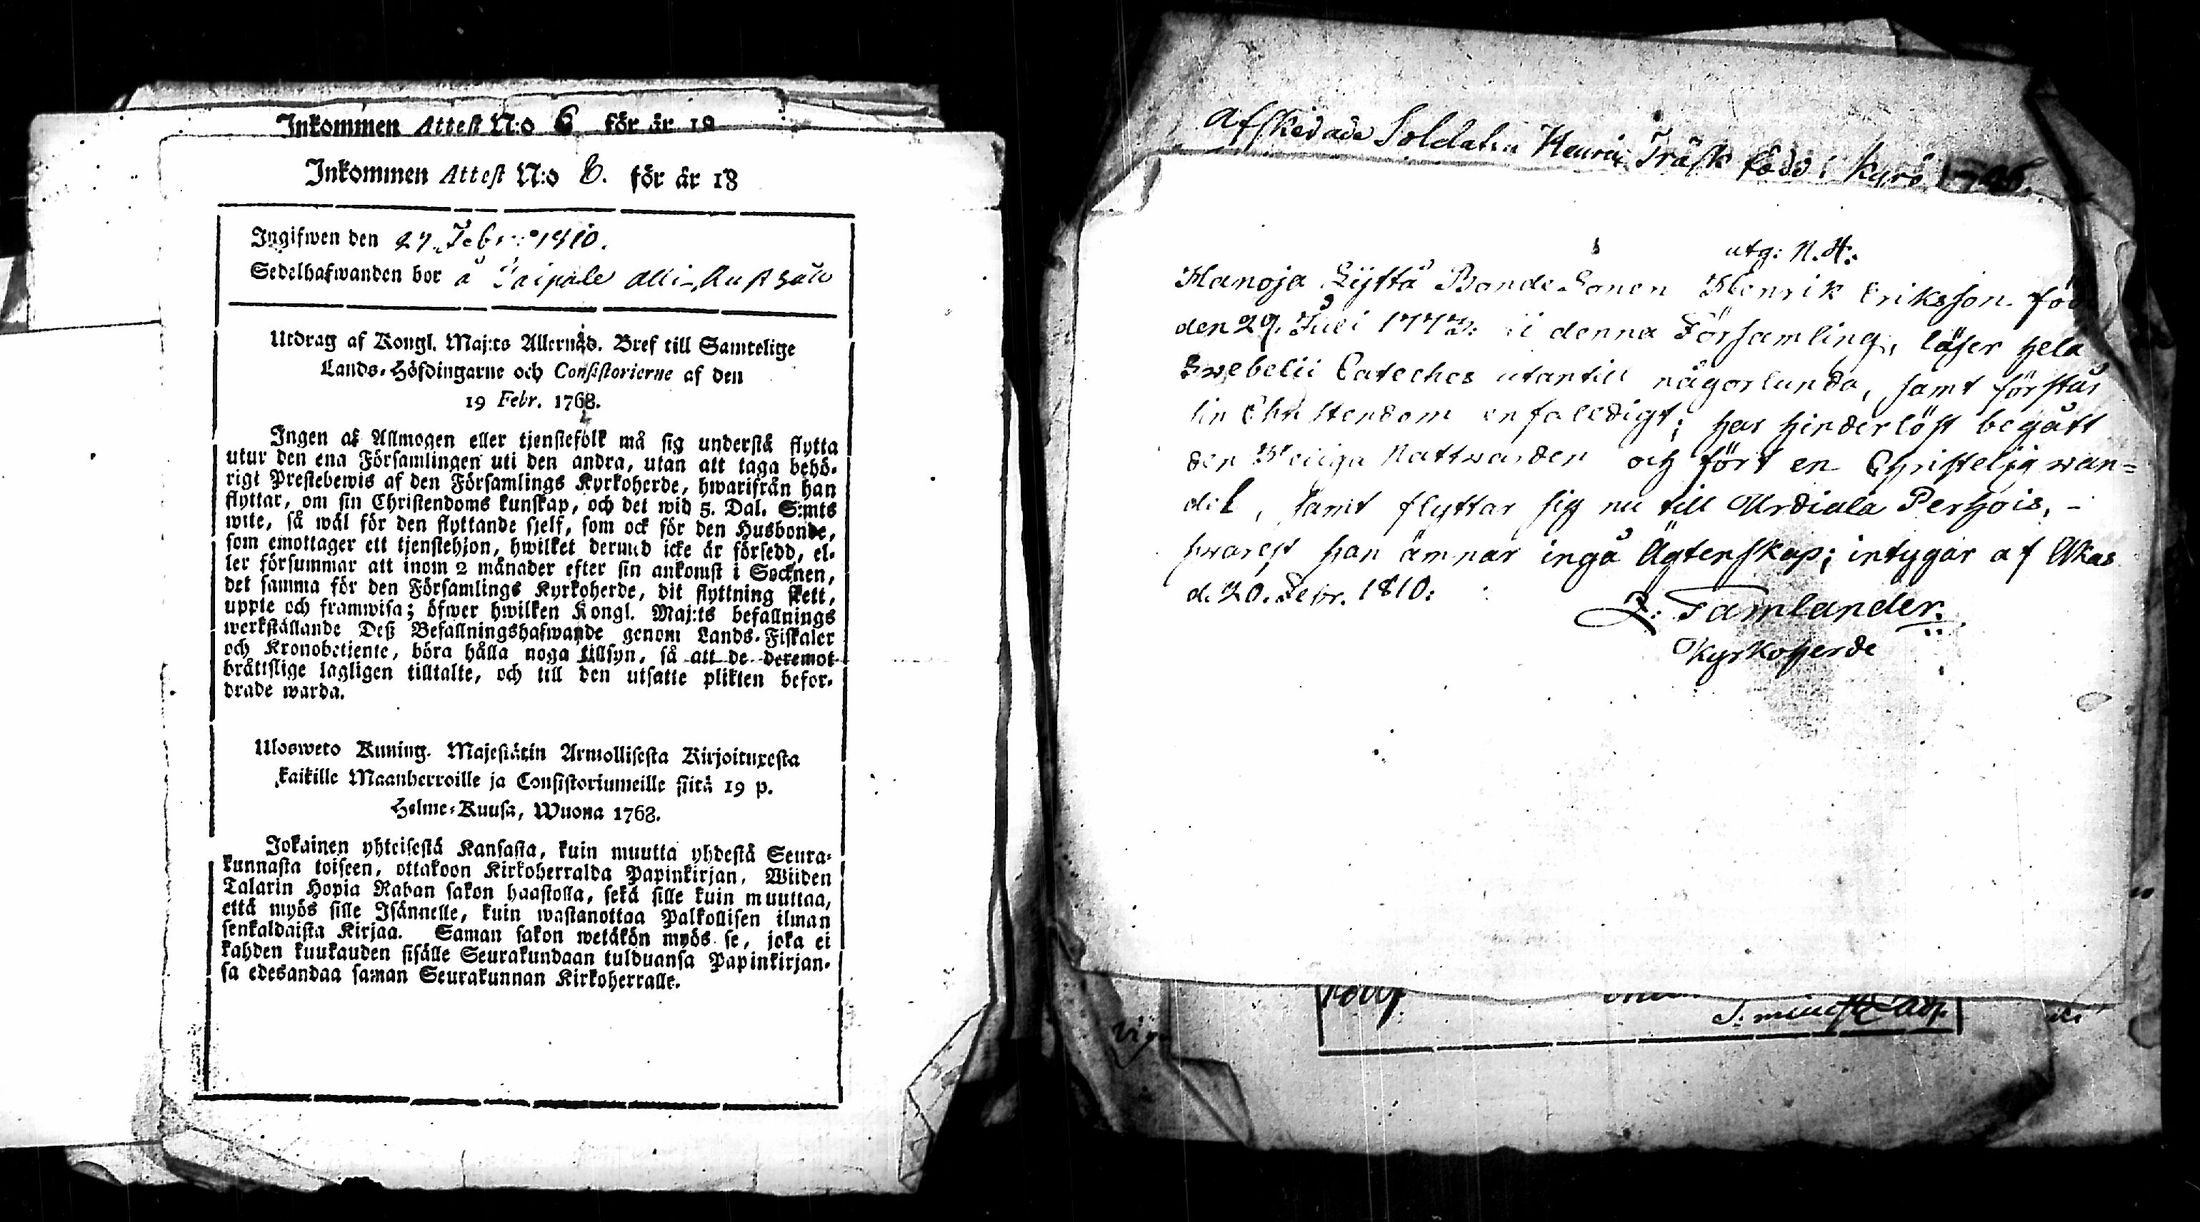 Inkommen Attest N:o 6 för år 18
Inkommen Attest N:o 6. för år 18
Ingifwen den 27 Febr: 1810.
Sedelhafwanden bor å Taipale
Utdrag af Kongl. Maj:ts Allernåd. Bref till Samtelige
Lands-Höfdingarne och Consistorierne af den
19 Febr. 1768.
Ingen af Allmogen eller tjenstefolk må sig understå flytta
utur den ena Församlingen uti den andra, utan att taga behö-
rigt Prestebewis af den Församlings Kyrkoherde, hwarifrån han
flyttar, om sin Christendoms kunskap, och det wid 5. Dal. S:mts
wite, så wäl för den flyttande sjelf, som ock för den Husbonde,
som emottager ett tjenstehjon, hwilket dermed icke är försedd, el-
ler försummar att inom 2 månader efter sin ankomst i Socknen,
det samma för den Församlings Kyrkoherde, dit flyttning skett,
uppte och framwisa; öfwer hwilken Kongl. Maj:ts befallnings
werkställande Deß Befallningshafwande genom Lands-Fiskaler
och Kronobetjente, böra hålla noga tillsyn, så att de deremot
bråttslige lagligen tilltalte, och till den utsatte plikten befor-
drade warda.
Ulosweto Kuning. Majestätin Armollisesta Kirjoituxesta
kaikille Maanherroille ja Consistoriumeille siitä 19 p.
Helme-Kuusa, Wuona 1768.
Jokainen yhteisestä Kansasta, kuin muutta yhdestä Seura-
kunnasta toiseen, ottakoon Kirkoherralda Papinkirjan, Wiiden
Talarin Hopia Rahan sakon haastolla, sekä sille kuin muuttaa,
että myös sille Isännelle, kuin wastanottaa Palkollisen ilman
senkaldaista Kirjaa. Saman sakon wetäkön myös se, joka ei
kahden kuukauden sisälle Seurakundaan tulduansa Papinkirjan-
sa edesandaa saman Seurakunnan Kirkoherralle.
Afskedade Soldaten Henric Träsk född i Kyrö
utg: N. 4:
Hanoja Lyttä Bonde Sonen Henrik Eriksson föd
den 29. Juli 1773: i denna Församling, läser hela
Swebelii Cateches utantill någorlunda, samt förstår
sin Christendom enfaldigt; har hinderlöst begått
den Heliga Nattwarden och fört en Christelig wan=
del, samt flyttar sig nu till Urdiala Perhois, -
hwarest han ämnar ingå Ägtenskap; intygar af Akas
d. 20. Febr. 1810:
Z: Tamlander.
Kyrkoherde